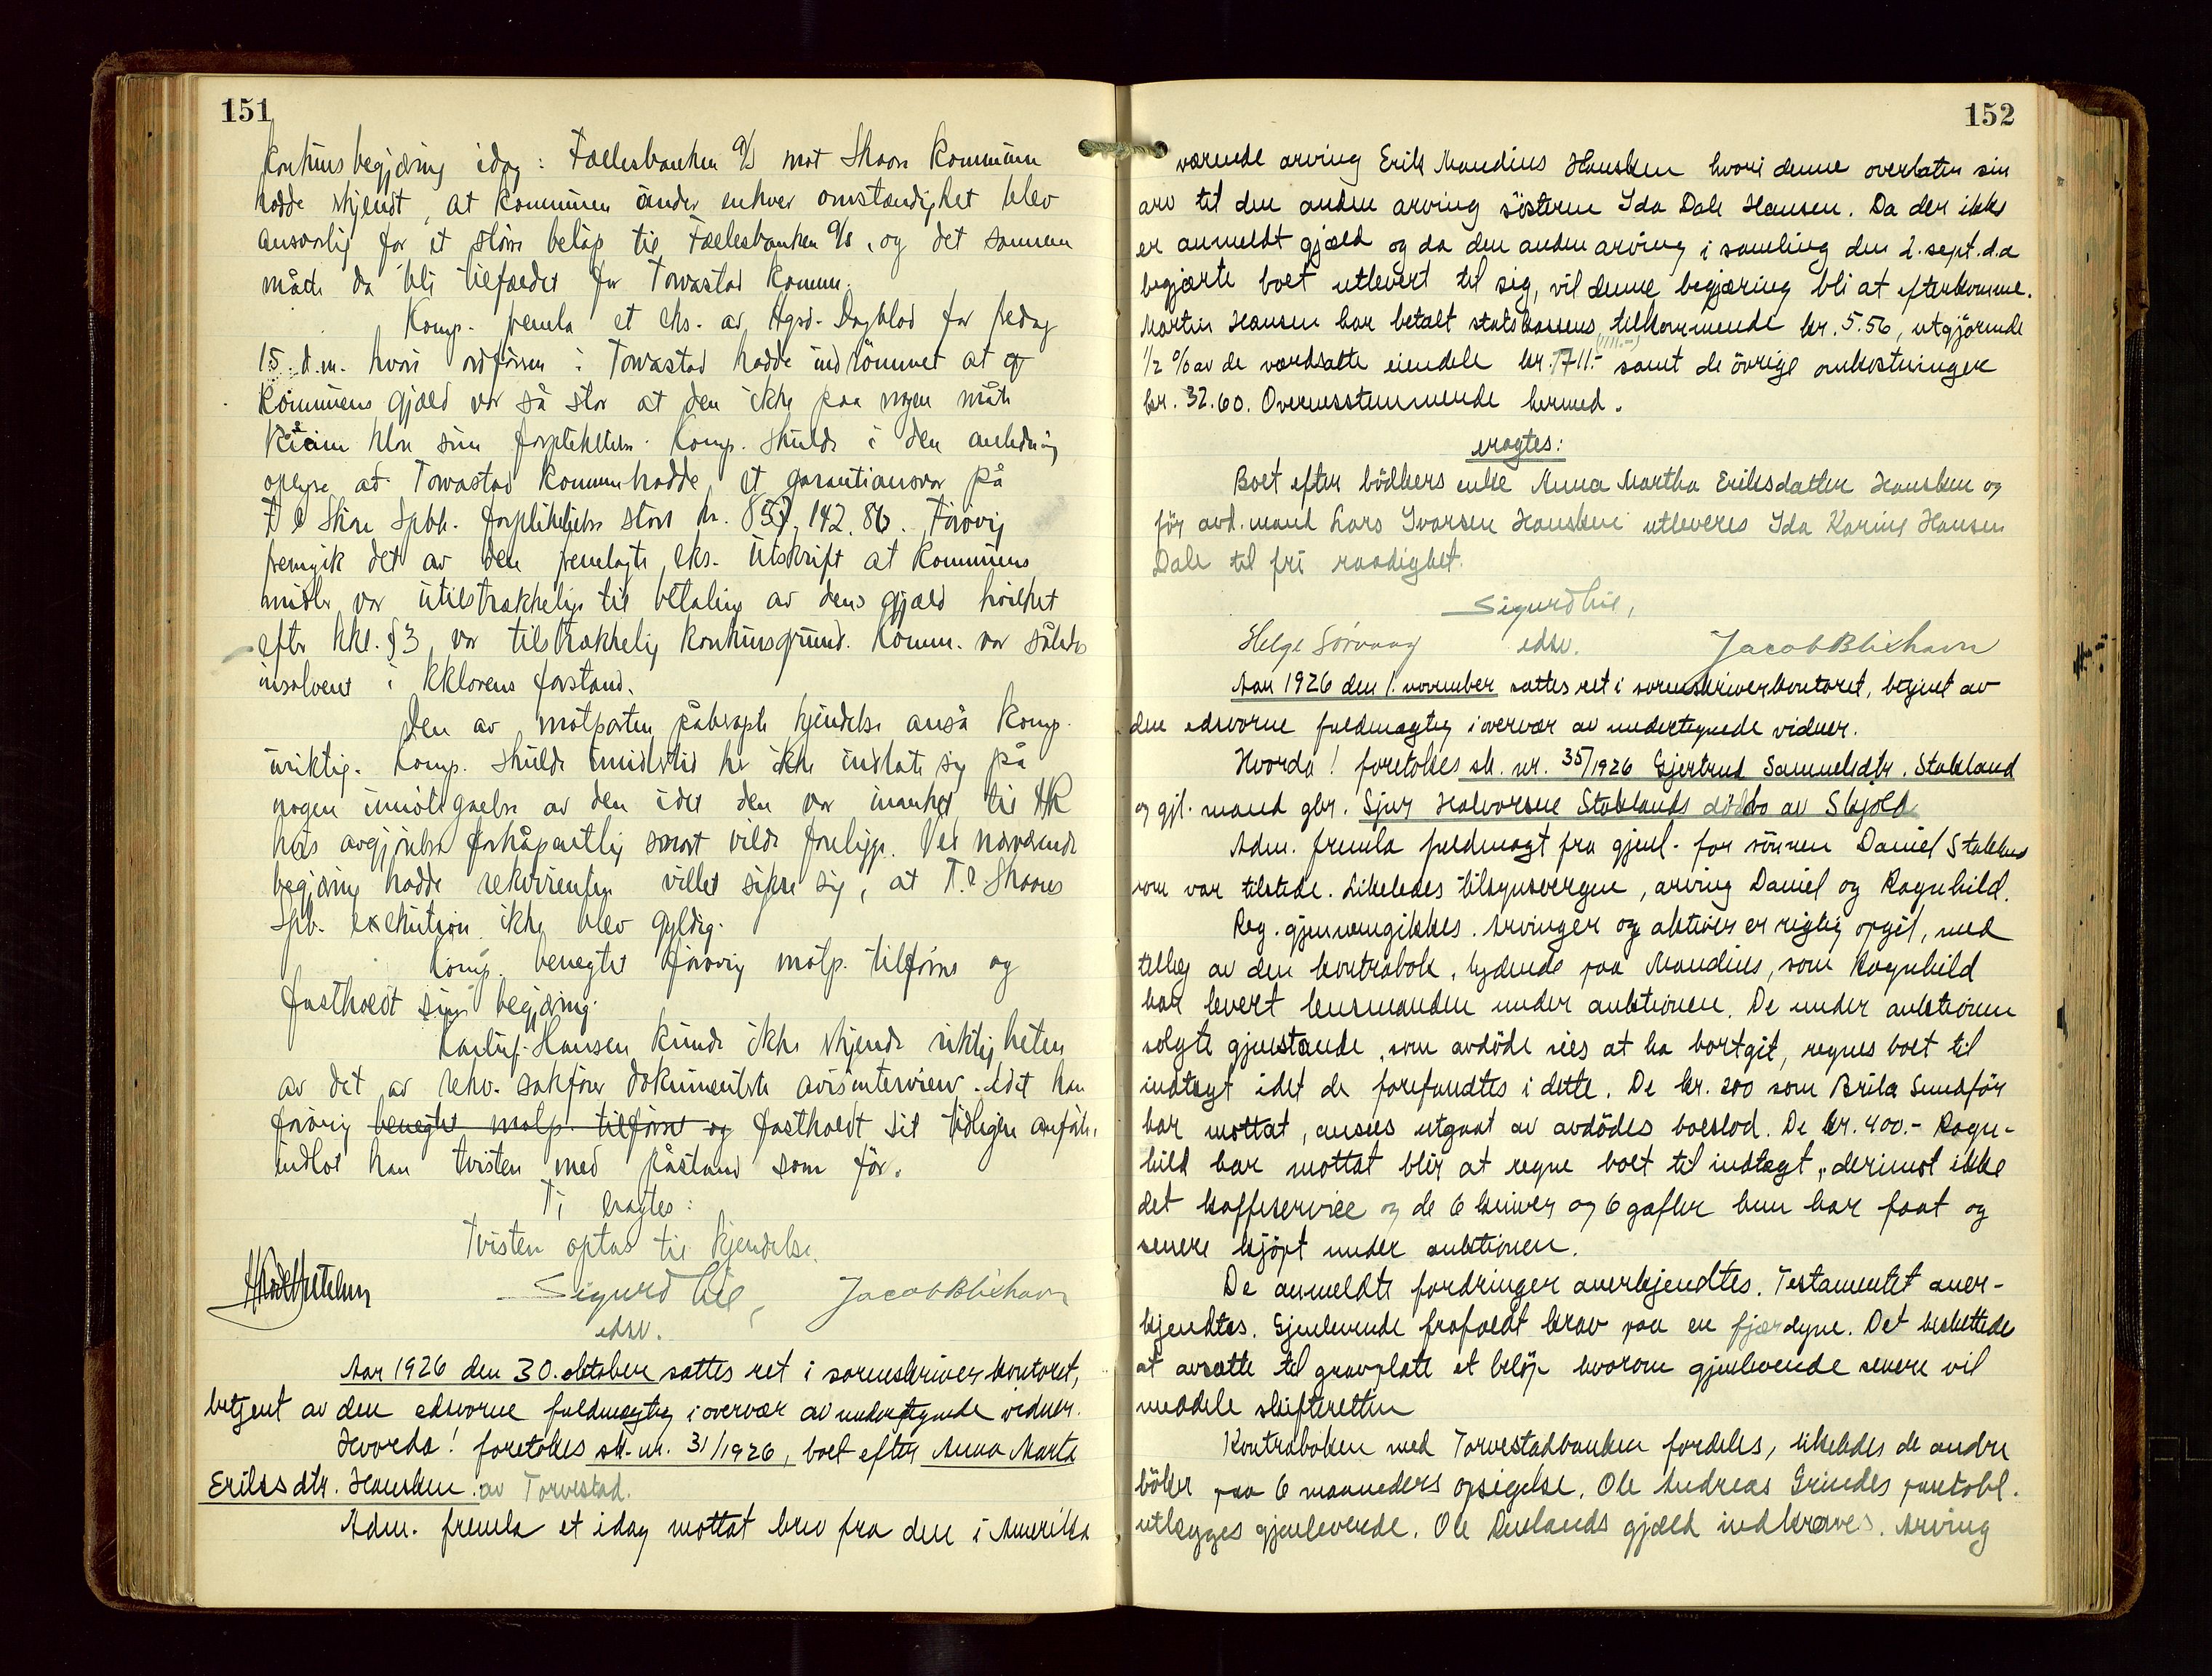 151
Konkursbegjæring idag: Fællesbanken A/S mot Skaare kommune
hadde skjendt, at kommunen under enhver omstændighet blev
ansvarlig for et større beløp til Fællesbanken A/S, og det samme
måtte da bli tilfældet for Torvastad komm.
Komp. fremla et eks. av Hgsd. Dagblad for fredag
15. d.m. hvori ordføreren i Torvastad hadde indrømmet at
kommunens gjæld var så stor at den ikke paa nogen måte
kunde klare sine forpliktelser. Komp. skulde i den anledning
oplyse at Torvastad kommune hadde et garantiansvar på
T & Skåre Spbk. forpliktelser stort kr. 857,142.86. Forøvrig
fremgik det av den fremlagte eks. utskrift at kommunens
midler var utilstrækkelig til betaling av dens gjæld hvilket
efter kkl. §3 var tilstrækkelig konkursgrund. Komm. var således
insolvent i kklovens forstand.
Den av motparten påberopte kjendelse anså komp.
uriktig. Komp. skulde imidlertid her ikke indlate sig på
nogen imøtegaaelse av den idet den var inanket til HR
hvis avgjørelse forhåpentlig snart vilde foreligge. Ved nærværende
begjæring hadde rekvirenten villet sikre sig, at T. & Skaares
Spb. exekution ikke blev gyldig.
Komp. benegtet forøvrig motp. tilførsel og
fastholdt sin begjæring.
Hansen kunde ikke skjende riktigheten
av det av rekv. sakfører dokumenterte avisinterview. Idet han
forøvrig benegtet motp. tilførsel og fastholdt sit tidligere anførte,
indlot han tvisten med påstand som før.
Ti eragtes:
Tvisten optas til kjendelse.
Sigurd Lie, Jacob Blixhavn
edsv.
Aar 1926 den 30. oktober sattes ret i sorenskriverkontoret,
betjent av den edsvorne fuldmægtig i overvær av undertegnede vidner.
Hvorda! foretokes sk. nr. 31/1926, boet efter Anna Marta
Eriksdtr. Hausken av Torvestad.
Adm. fremla et idag mottat brev fra den i Amerika
152
værende arving Erik Mandius Hausken hvori denne overlater sin
arv til den anden arving søsteren Ida Dale Hansen. Da der ikke
er anmeldt gjæld og da den anden arving i samling den 2. sept. d.a
begjærte boet utlevert til sig, vil denne begjæring bli at efterkomme.
Martin Hansen har betalt statskassens tilkommende kr. 5.56, utgjørende
1/2 % av de værdsatte eiendele kr. 1711.- samt de øvrige omkostninger
kr. 32.60. Overensstemmende hermed.
eragtes:
Boet efter bødkers enke Anna Martha Eriksdatter Hausken og
før avd. mand Lars Ivarsen Hausken utleveres Ida Karine Hansen
Dale til fri raadighet.
Sigurd Lie,
Helge Sørvaag edsv. Jacob Blixhavn
Aar 1926 den 1. november sattes ret i sorenskriverkontoret, betjent av
den edsvorne fuldmægtig i overvær av undertegnede vidner.
Hvorda! foretokes sk. nr. 35/1926 Gjertrud Samuelsdtr. Stakland
og gjl. mand gbr. Sjur Halvorsen Staklands dødsbo av Skjold
Adm. fremla fuldmagt fra gjenl. for sønnen Daniel Stakland
som var tilstede. Likeledes tilsynsvergen, arving Daniel og Ragnhild.
Reg. gjennemgikkes. Arvinger og aktiver er rigtig opgit, med
tillæg av den kontrabok, lydende paa Mandius, som Ragnhild
har levert lensmanden under auktionen. De under auktionen
solgte gjenstande, som avdøde sies at ha bortgit, regnes boet til
indtægt idet de forefandtes i dette. De kr. 200 som Brita Sundfør
har mottat, ansees utgaat av avdødes boeslod. De kr. 400.- Ragn-
hild har mottat blir at regne boet til indtægt, derimot ikke
det kaffeservice og de 6 kniver og 6 gafler hun har faat og
senere kjøpt under auktionen.
De anmeldte fordringer anerkjendtes. Testamentet aner-
kjendtes. Gjenlevende frafaldt krav paa en fjærdyne. Det besluttedes
at avsætte til gravplate et beløp hvorom gjenlevende senere vil
meddele skifteretten
Kontraboken med Torvestadbanken fordeles, likeledes de andre
bøker paa 6 maaneders opsigelse. Ole Andreas Grindes pantobl.
utlægges gjenlevende. Ole gjæld indkræves. Arving